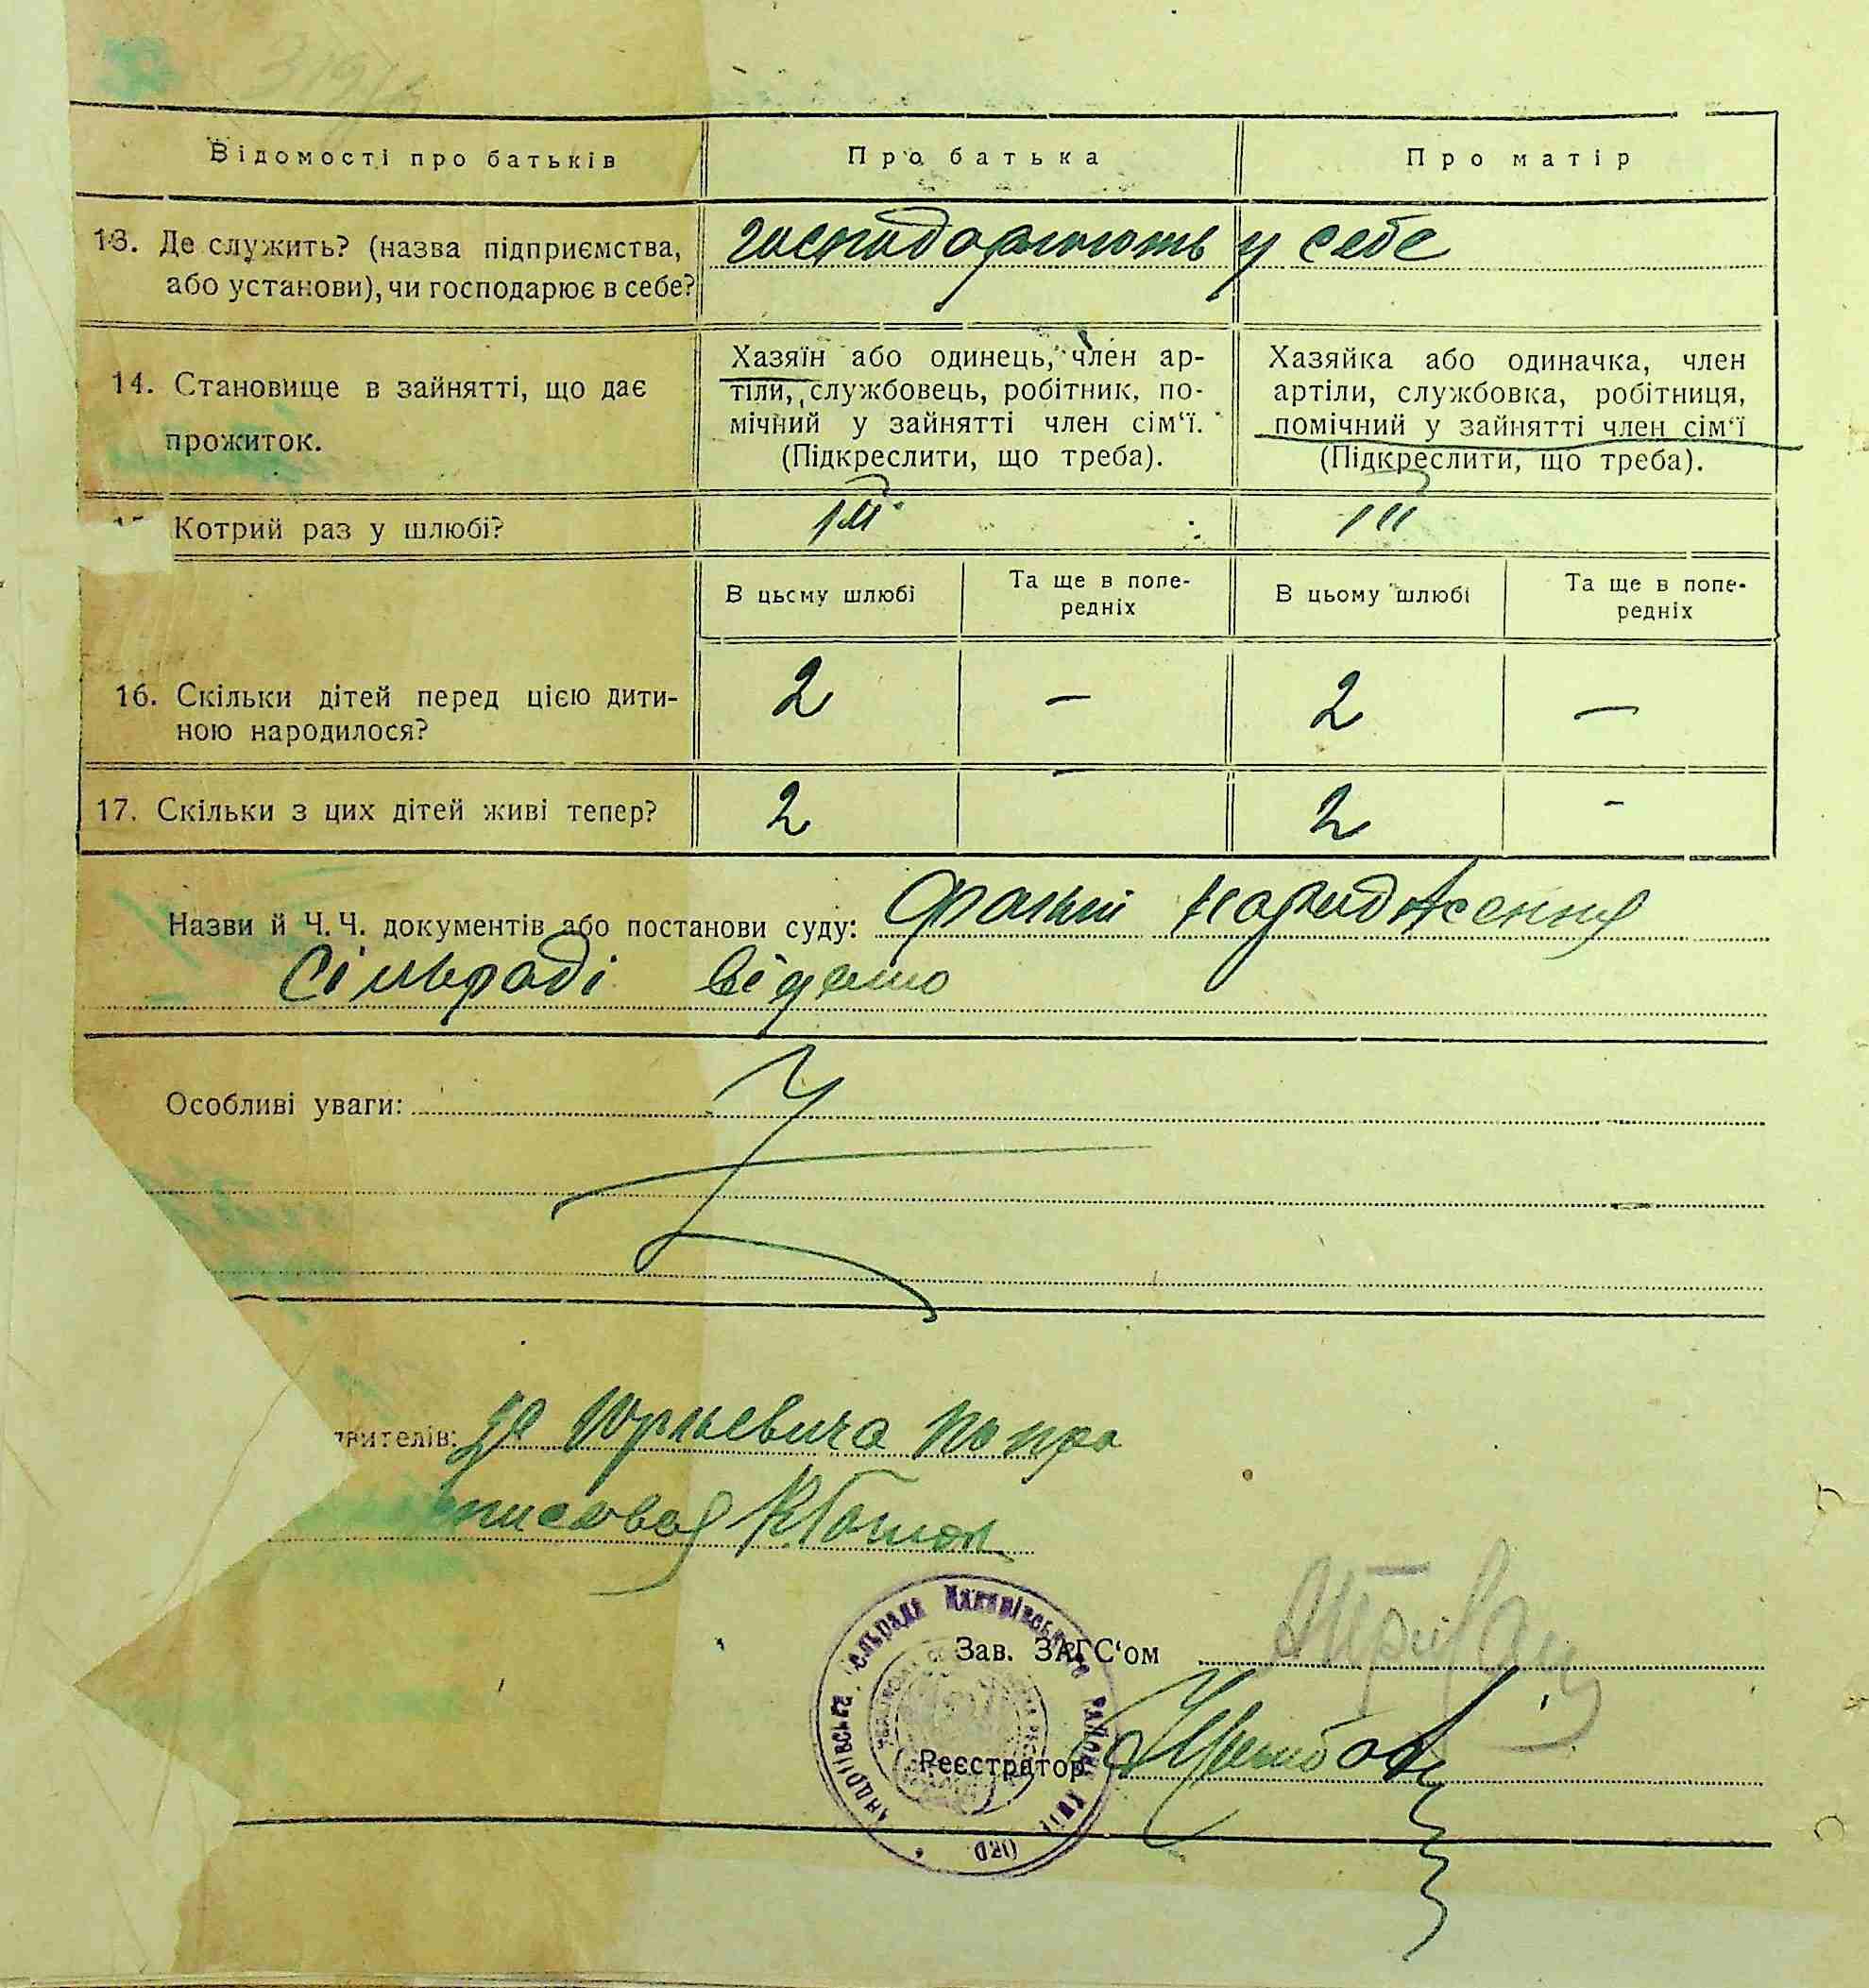 Відомості про батьків
Про батька
Про матір
13. Де служить? (назва підприємства,
або установи), чи господарює в себе?
господарюють у себе
14. Становище в зайнятті, що дає
прожиток.
Хазяїн або одинець, член ар-
тіли, службовець, робітник, по-
мічний у зайнятті член сім'ї.
(Підкреслити, що треба).
Хазяйка або одиначка, член
артіли, службовка, робітниця,
помічний у зайнятті член сім'ї
(Підкреслити, що треба).
Котрий раз у шлюбі?
В цьому шлюбі
Та ще в попе-
редніх
В цьому шлюбі
Та ще в попе-
редніх
16. Скільки дітей перед цією дити-
ною народилося?
2 — 2 —
17. Скільки з цих дітей живі тепер?
2 2 -
Назви й Ч. Ч. документів або постанови суду: Факт народження
сільраді відомо
Особливі уваги:
вителів: за Юрьевича
Зав. ЗАГС'ом
Реєстратор
Андріївська сільрада Макарівського району